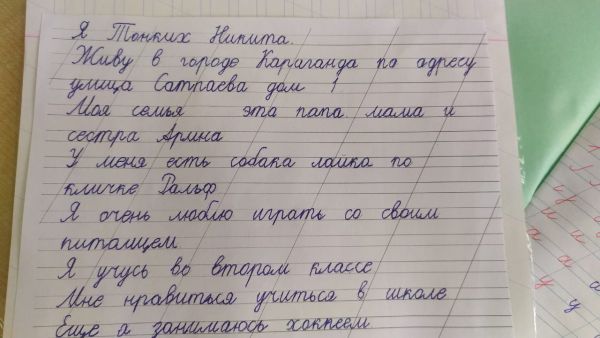 Я Тонких Никита.
Живу в городе Караганда по адресу
улица Сатпаева дом 1
Моя семья эта папа мама и
сестра Арина
У меня есть собака лайка по
кличке Ральф
Я очень люблю играть со своим
питамцем
Я учусь во втором классе
Мне нравиться учиться в школе
Еще я занимаюсь хоккеем